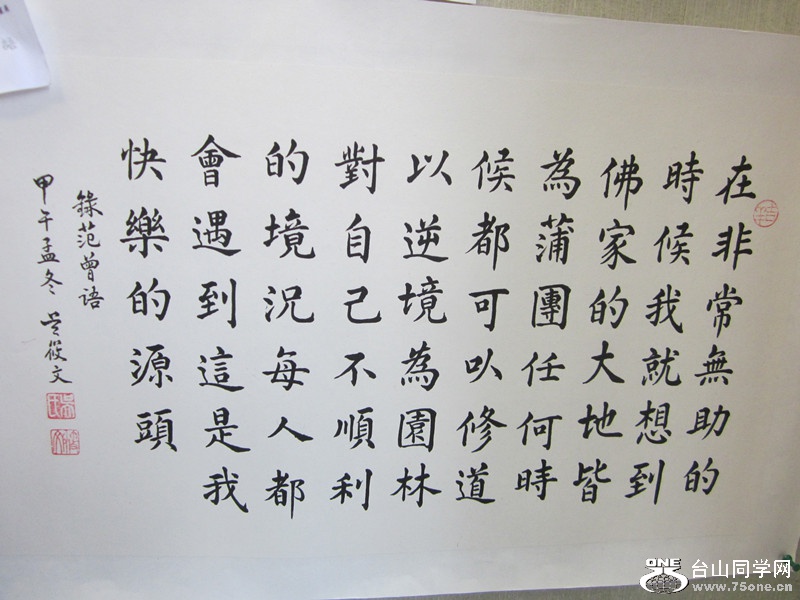 在非常無助的
時候我就想到
佛家的大地皆
為蒲團任何時
候都可以修道
以逆境為園林
對自己不順利
的境況每人都
會遇到這是我
快樂的源頭
錄范曾语
甲午孟冬 吴筱文
ONE
台山同学网
www.75one.cn